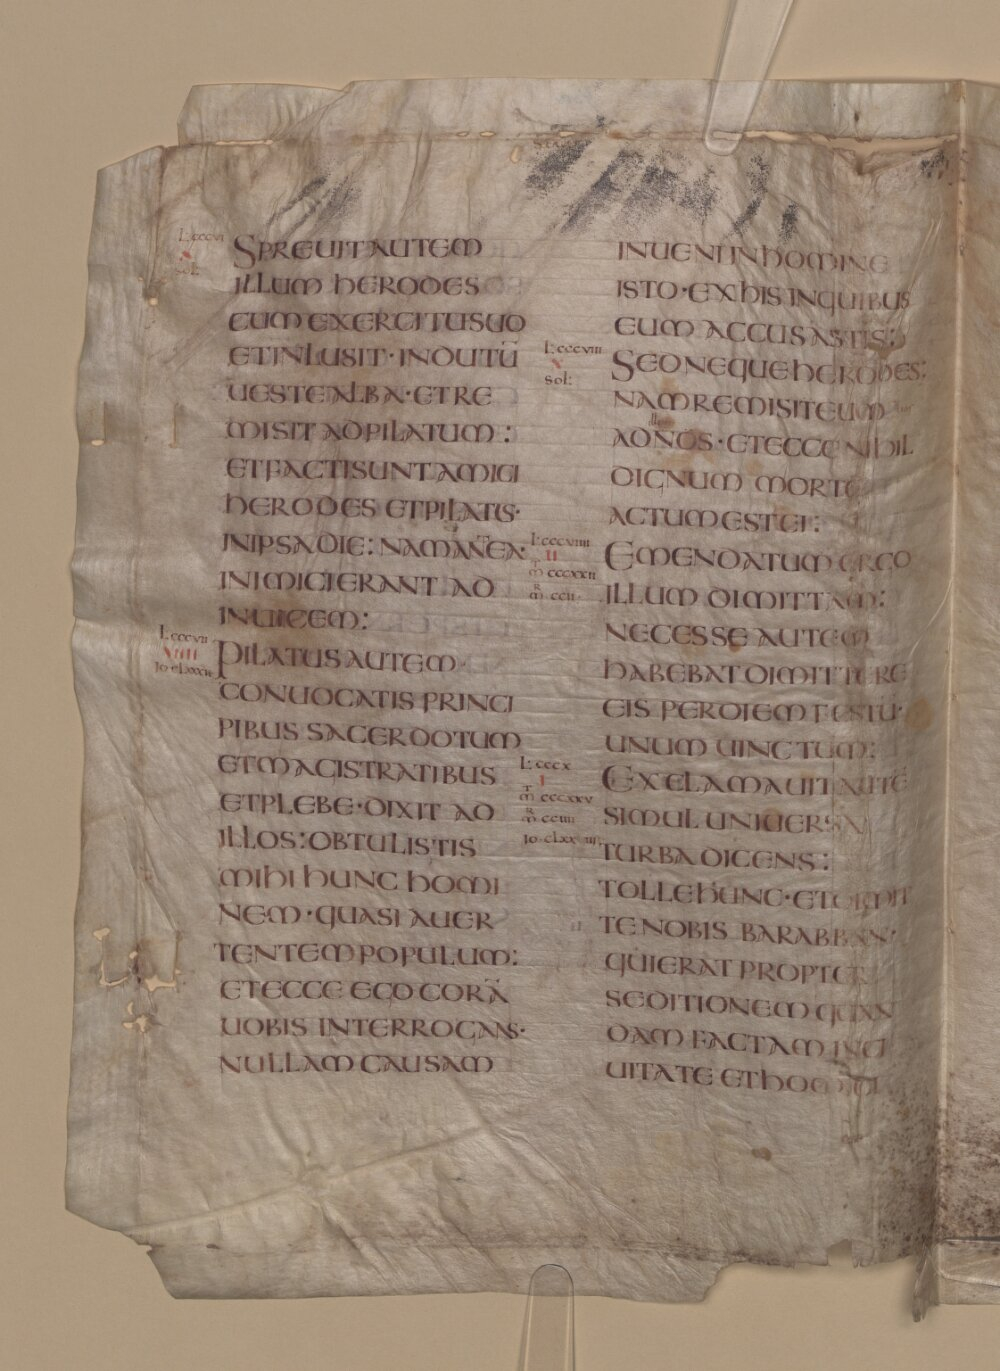 L: cccvi
sol:
SPREUIT AUTEM
ILLUM HERODES
CUM EXERCITU SUO
ET INLUSIT · INDUTŪ
UESTE ALBA · ET RE
MISIT AD PILATUM :
ET FACTI SUNT AMICI
HERODES ET PILATUS ·
IN IPSA DIE : NAM ANTEA ·
INIMICI ERANT AD
INUICEM :
L: cccvii
viiii
PILATUS AUTEM ·
CONUOCATIS PRINCI
PIBUS SACERDOTUM
ET MAGISTRATIBUS
ET PLEBE · DIXIT AD
ILLOS : OBTULISTIS
MIHI HUNC HOMI
NEM · QUASI AUER
TENTEM POPULUM :
ET ECCE EGO CORĀ
UOBIS INTERROGANS ·
NULLAM CAUSAM
INUENI IN HOMINE
ISTO · EX HIS IN QUIBUS
EUM ACCUSASTIS :
L: cccviii
x
sol:
SED NEQUE HERODES :
NAM REMISI TE UOS
AD illum NOS · ET ECCE NIHIL
DIGNUM MORTE
ACTUM EST EI :
L: cccviiii
ii
mt cccxxii
mr ccii
EMENDATUM ERGO
ILLUM DIMITTAM :
NECESSE AUTEM
HABEBAT DIMITTERE
EIS PER DIEM FESTŪ ·
UNUM UINCTUM :
L: cccx
i
mt cccxxv
mr cciiii
EXCLAMAUIT AUTĒ
SIMUL UNIUERSA
TURBA DICENS :
TOLLE HUNC · ET DIMIT
TE NOBIS BARABBAN ·
QUI ERAT PROPTER
SEDITIONEM QUAN
DAM FACTAM IN CI
UITATE ET HOMICI